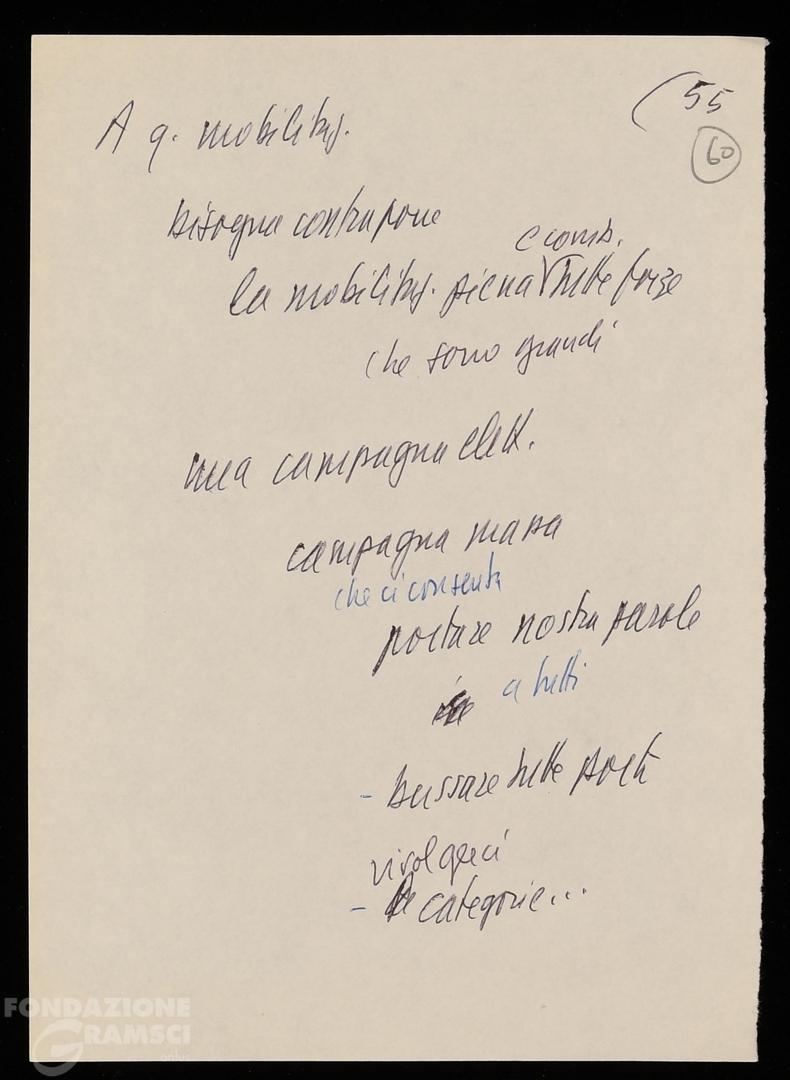 (55
60
A q. mobilitaz.
bisogna contrapporre
e comb.
la mobilitaz. piena tutte forze
che sono grandi
una campagna elett.
campagna massa
che ci consenta
portare nostra parola
a tutti
- bussare tutte porte
rivolgerci
- categorie...
FONDAZIONE
GRAMSCI
onlus